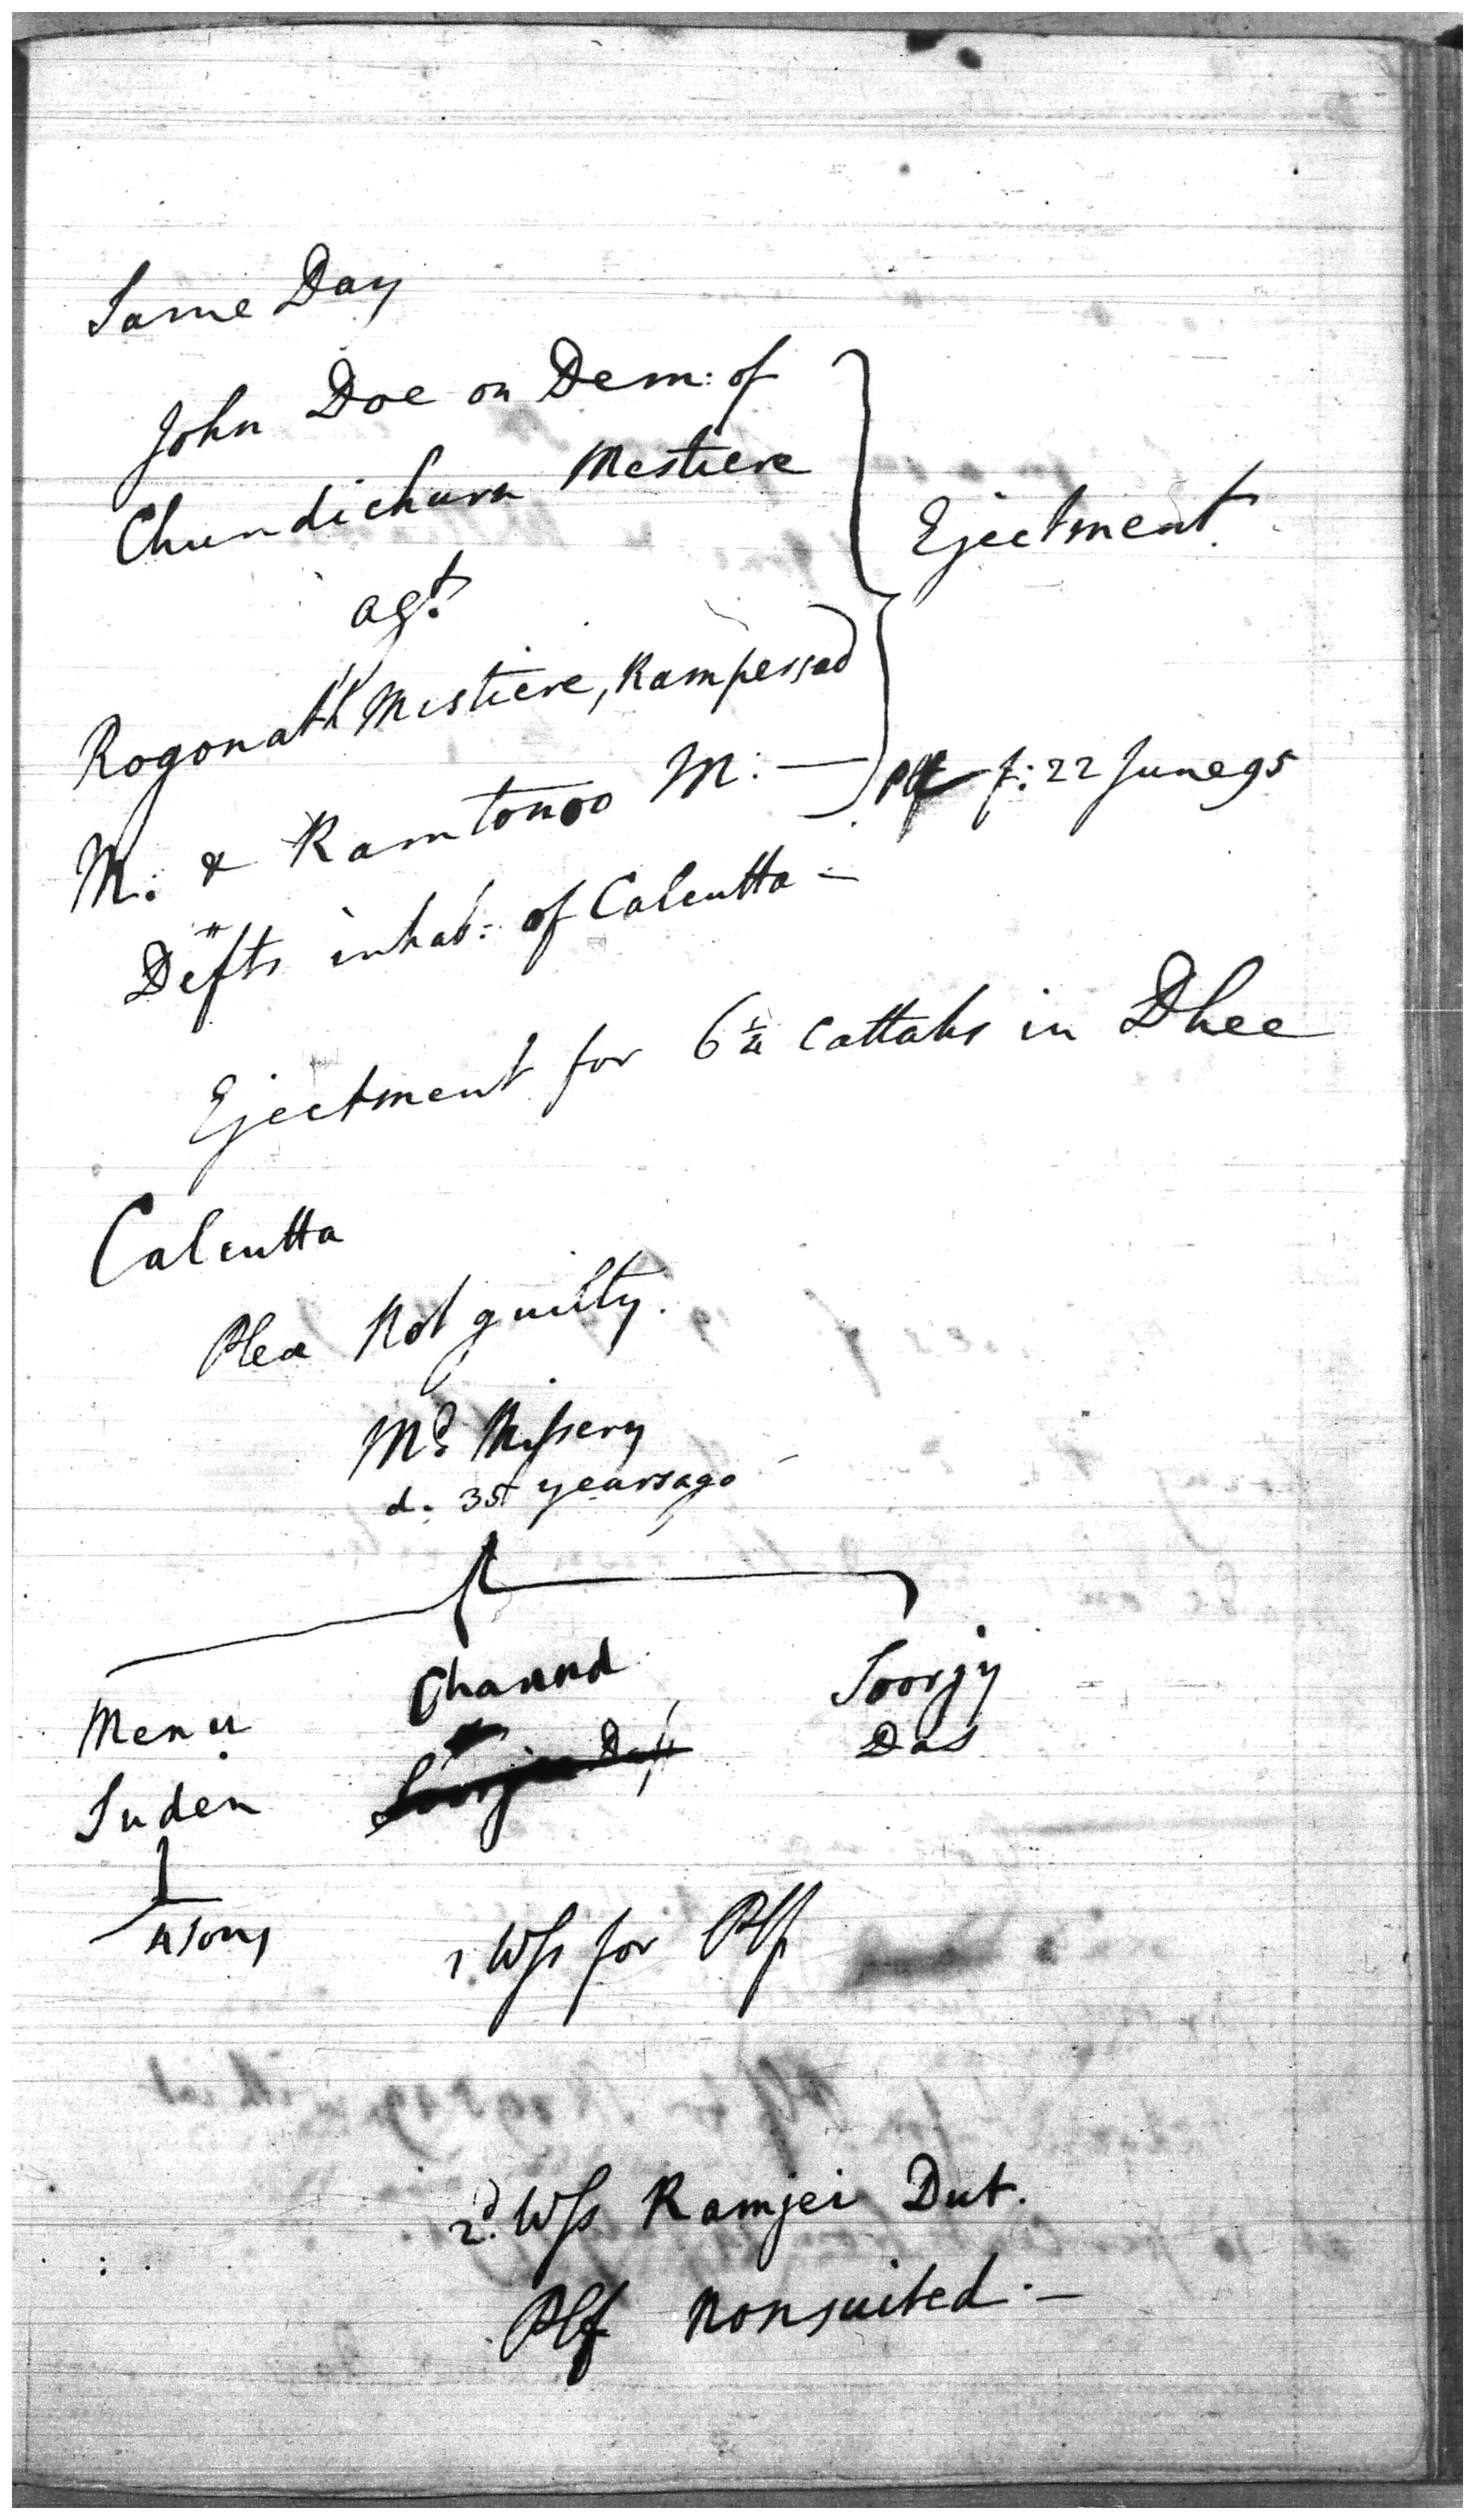 Same Day
John Doe on Dem: of
Chundichurn Mestiere
agt.
Ejectment.
Rogonath Mistiere, Rampersad
M: & Ramtonoo M: —
Plf f: 22 June 95
Defts inhab: of Calcutta —
Ejectment for 6 1/4 Cattahs in Dhee
Calcutta
Plea Not guilty.
d. 35 years ago
Menu Channd Soorjy
Suden Das
4 sons
1. Wss for Plf
2d. Wss Ramjei Dut.
Plf Nonsuited. —